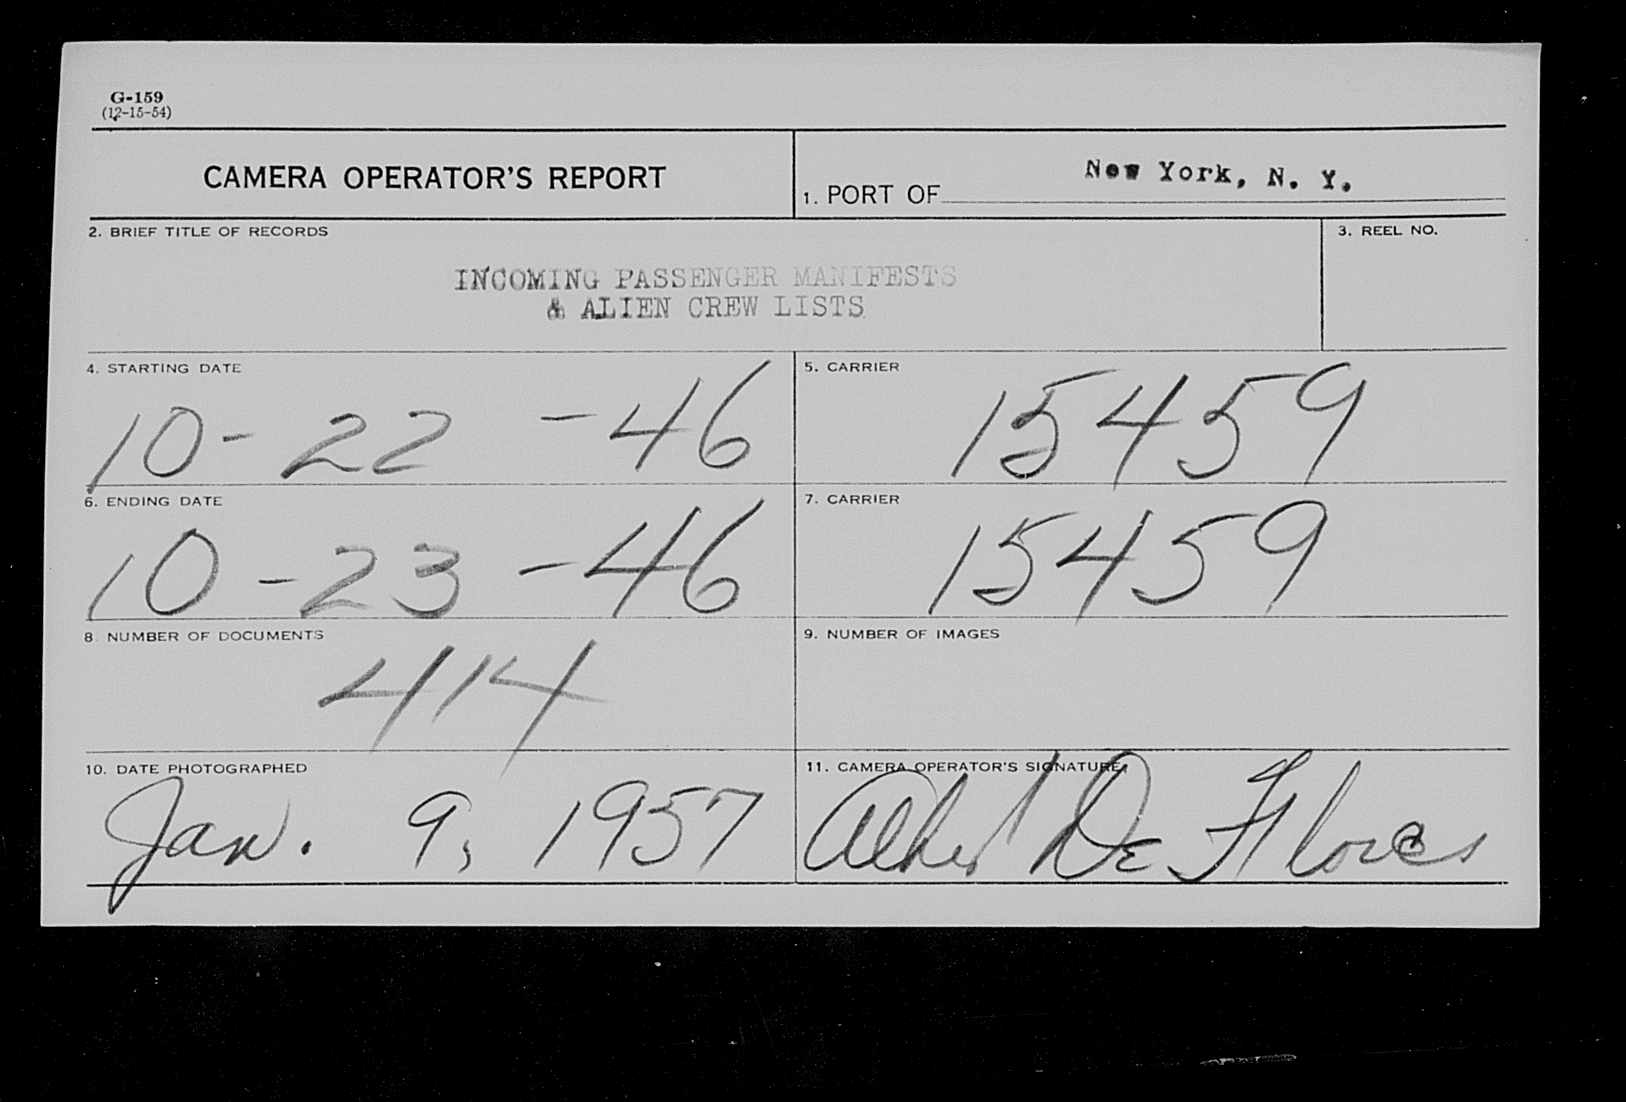 G-159
(12-15-54)
CAMERA OPERATOR'S REPORT
1. PORT OF New York, N. Y.
2. BRIEF TITLE OF RECORDS
3. REEL NO.
INCOMING PASSENGER MANIFESTS
& ALIEN CREW LISTS
4. STARTING DATE
10-22-46
5. CARRIER
15459
6. ENDING DATE
10-23-46
7. CARRIER
15459
8. NUMBER OF DOCUMENTS
414
9. NUMBER OF IMAGES
10. DATE PHOTOGRAPHED
Jan. 9, 1957
11. CAMERA OPERATOR'S SIGNATURE
De Flores